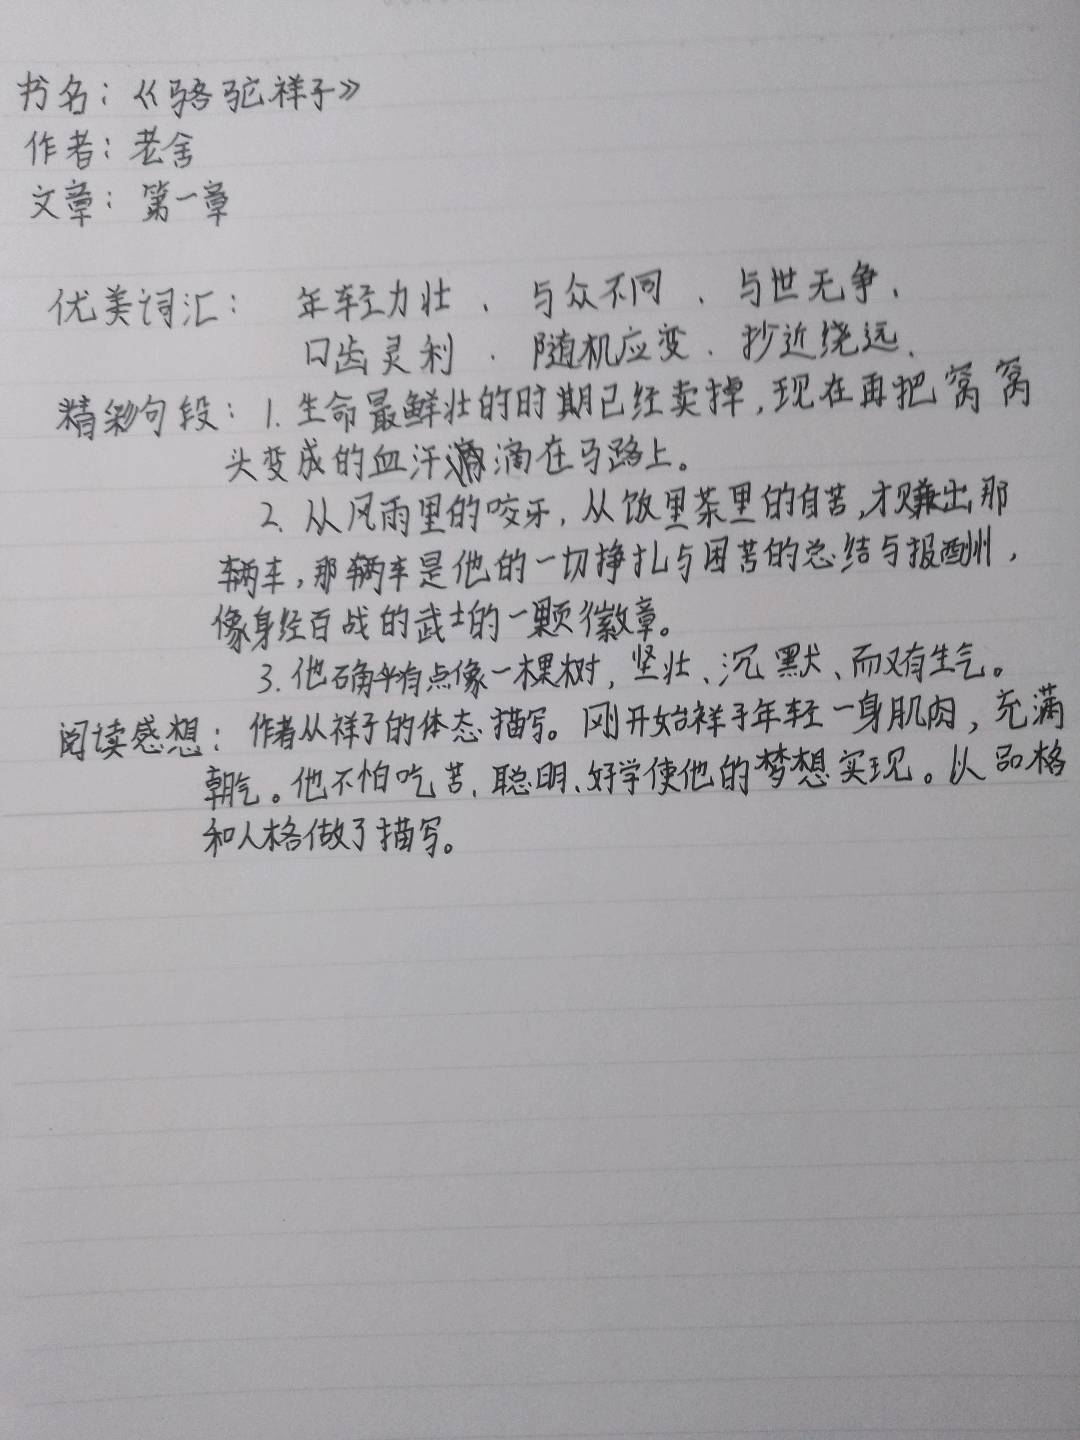 书名：《骆驼祥子》
作者：老舍
文章：第一章
优美词汇： 年轻力壮、与众不同、与世无争、
口齿灵利、随机应变、抄近绕远、
精彩句段：1.生命最鲜壮的时期已经卖掉，现在再把窝窝
头变成的血汗滴在马路上。
2.从风雨里的咬牙，从饭里茶里的自苦，才赚出那
辆车，那辆车是他的一切挣扎与困苦的总结与报酬，
像身经百战的武士的一颗徽章。
3.他确乎有点像一棵树，坚壮、沉默、而又有生气。
阅读感想：作者从祥子的体态描写。刚开始祥子年轻一身肌肉，充满
朝气。他不怕吃苦、聪明、好学使他的梦想实现。从品格
和人格做了描写。